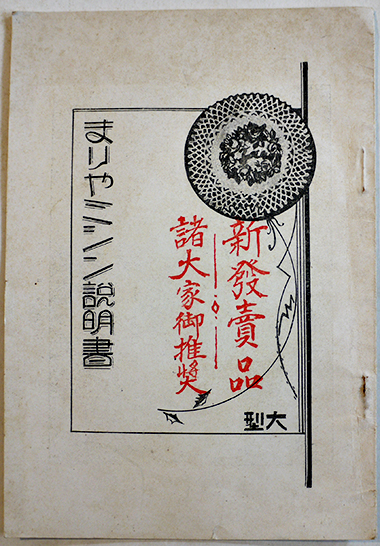 新發賣品
諸大家御推奬
大型
まりやミシン説明書